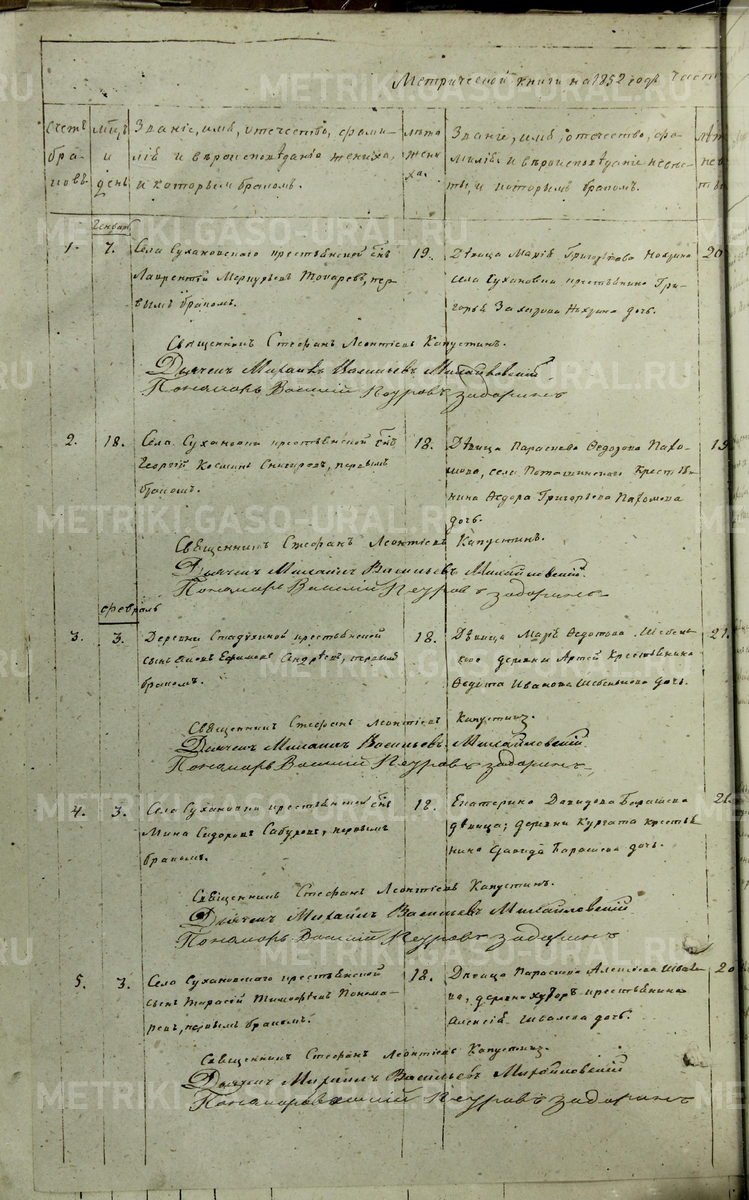 Метрической книги на 1852 годъ часть
Счетъ браковъ
Мцъ и день
Званіе, имя, отечество, фамилія и вѣроисповѣданіе жениха, и которымъ бракомъ.
лѣта жениха.
Званіе, имя, отечество, фамилія и вѣроисповѣданіе невѣсты, и которымъ бракомъ.
Генварь
1. 7.
Села Сухановскаго крестьянской снъ
Лаврентій Меркурьевъ Токаревъ, первымъ бракомъ.
19.
Дѣвица Марія Григорьева
села Сухановки крестьянина Григорья Захарова дочь.
20
Священникъ Стефанъ Леонтіевъ Капустинъ.
Дьячекъ Михаилъ Васильевъ Михайловскій
Пономарь Василій Задоринъ
2. 18.
Села Сухановки крестьянской снъ
Георгій Космин Снигиревъ, первымъ
бракомъ.
18.
Дѣвица Параскева Ѳедорова Пахомова, села Поташинскаго крестьянина Ѳедора Григорьева Пахомова
дочь.
19
Священникъ Стефанъ Леонтіевъ Капустинъ.
Дьячекъ Михаилъ Васильевъ Михайловскій.
Пономарь Василій Задоринъ
февраль
3. 3.
Деревни крестьянской
сынъ Ефимовъ первымъ
бракомъ.
18.
Дѣвица Марѳа Ѳедотова
деревни Артей крестьянина
Ѳедота Иванова дочь.
21.
Священникъ Стефанъ Леонтіевъ Капустинъ.
Дьячекъ Михаилъ Васильевъ Михайловскій.
Пономарь Василій Задоринъ
4. 3.
Села Сухановки крестьянской снъ
Мина Сидоровъ Сабуровъ, первымъ
бракомъ.
18.
Екатерина Давидова Барашева
дѣвица; деревни Кургата крестьянина Давида Барашева дочь.
Священникъ Стефанъ Леонтіевъ Капустинъ.
Дьячекъ Михаилъ Васильевъ Михайловскій
Пономарь Василій Задоринъ
5. 3.
Села Сухановскаго крестьянской
сынъ Тарасій Тимофѣевъ Пономаревъ, первымъ бракомъ.
18.
Дѣвица Параскева Алексіева Швалева, деревни Хуторъ крестьянина
Алексія Швалева дочь.
20
Священникъ Стефанъ Леонтіевъ Капустинъ.
Дьячекъ Михаилъ Васильевъ Михайловскій
Пономарь Василій Задоринъ
METRIKI.GASO-URAL.RU